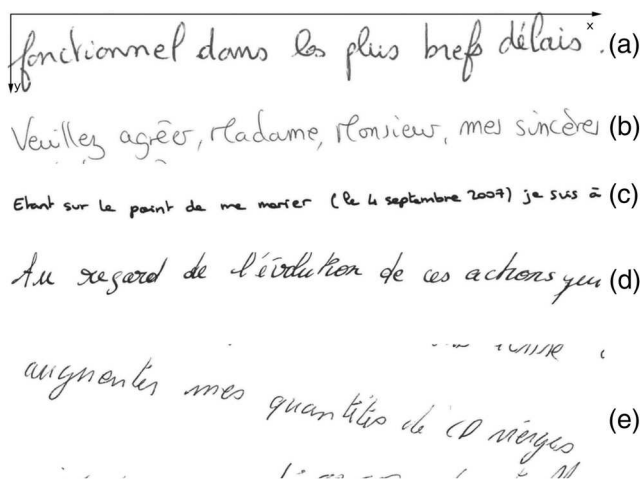 x
fonctionnel dans les plus brefs délais. (a)
y
Veuillez agréer, Madame, Monsieur, mes sincères (b)
Etant sur le point de me marier (le 4 septembre 2007) je suis à (c)
Au regard de l'évolution de ces actions (d)
augmenter mes quantités de CD vierges (e)